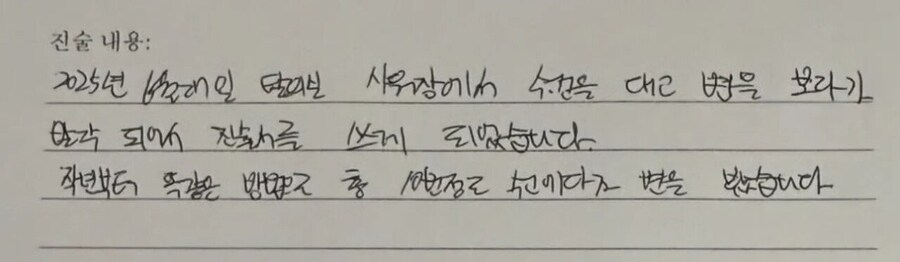 진술 내용:
2025년 샤워장에서 수건을 대고 변을 보다가
발각 되어서 진술서를 쓰게 되었습니다.
작년부터 똑같은 방법으로 총 10번정도 수건에다가 변을 봤습니다